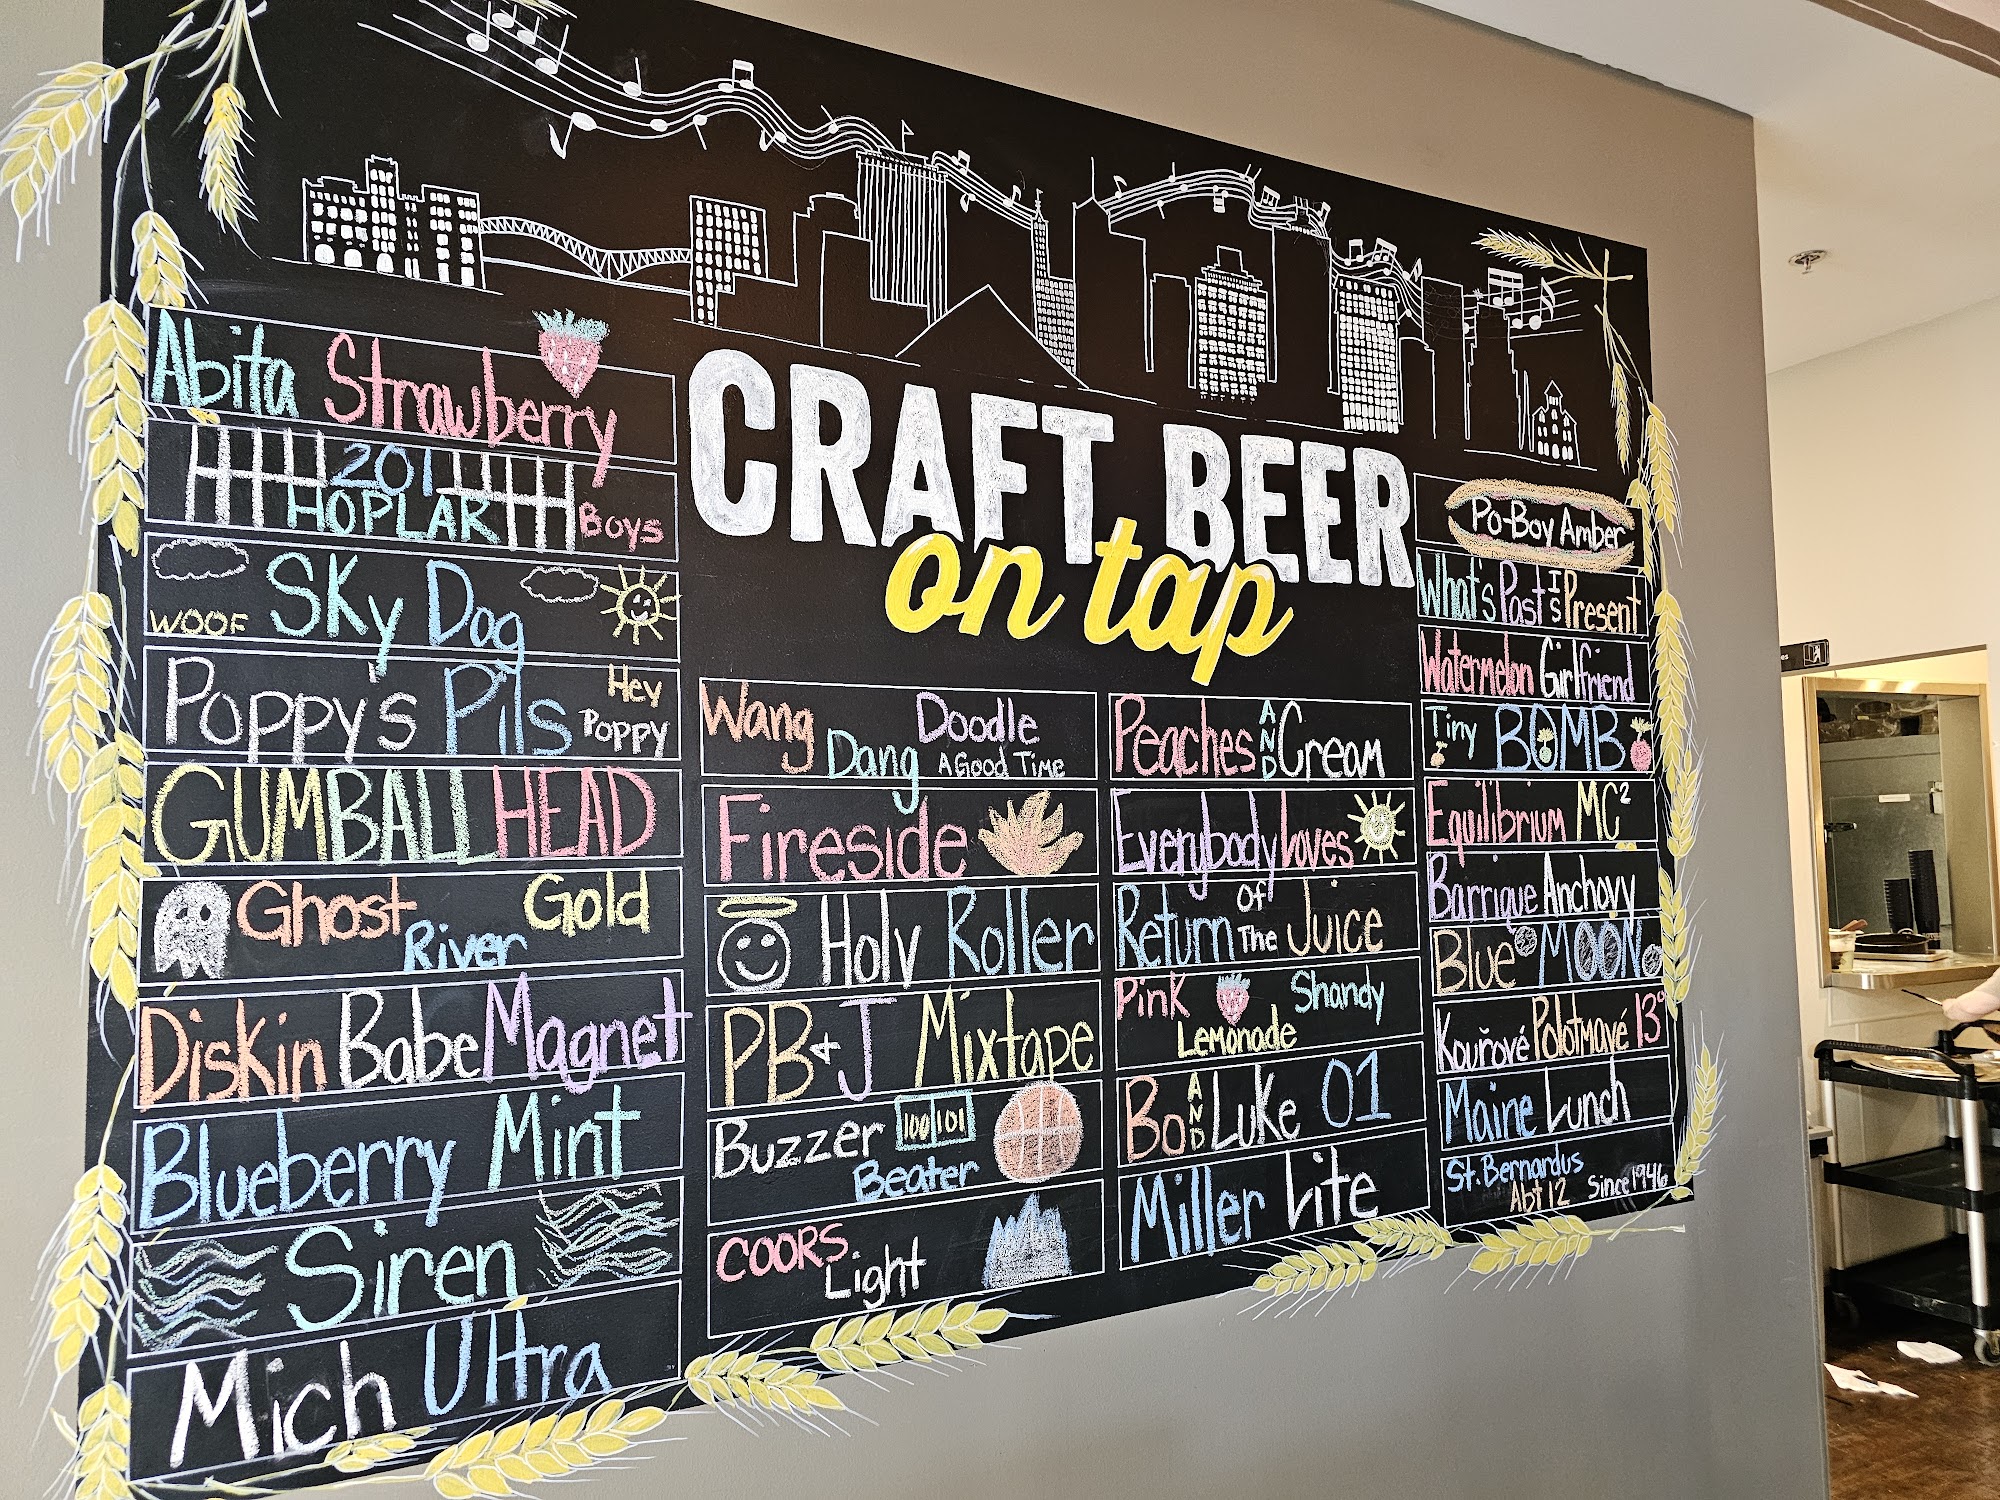 CRAFT BEER
on tap
Abita Strawberry
201
HOPLAR Boys
WOOF Sky Dog
Poppy's Pils Hey Poppy
GUMBALLHEAD
Ghost River Gold
Diskin Babe Magnet
Blueberry Mint
Siren
Mich Ultra
Wang Dang Doodle
A Good Time
Fireside
Holy Roller
PB+J Mixtape
Buzzer 100 101
Beater
COORS Light
Peaches AND Cream
Everybody Loves
Return of The Juice
Pink Lemonade Shandy
Bo AND Luke 01
Miller Lite
Po-Boy Amber
What's Past Is Present
Watermelon Girlfriend
Tiny BOMB
Equilibrium MC²
Barrique Anchovy
Blue MOON
Kouřové Polotmavé 13°
Maine Lunch
St. Bernardus
Abt 12 Since 1946